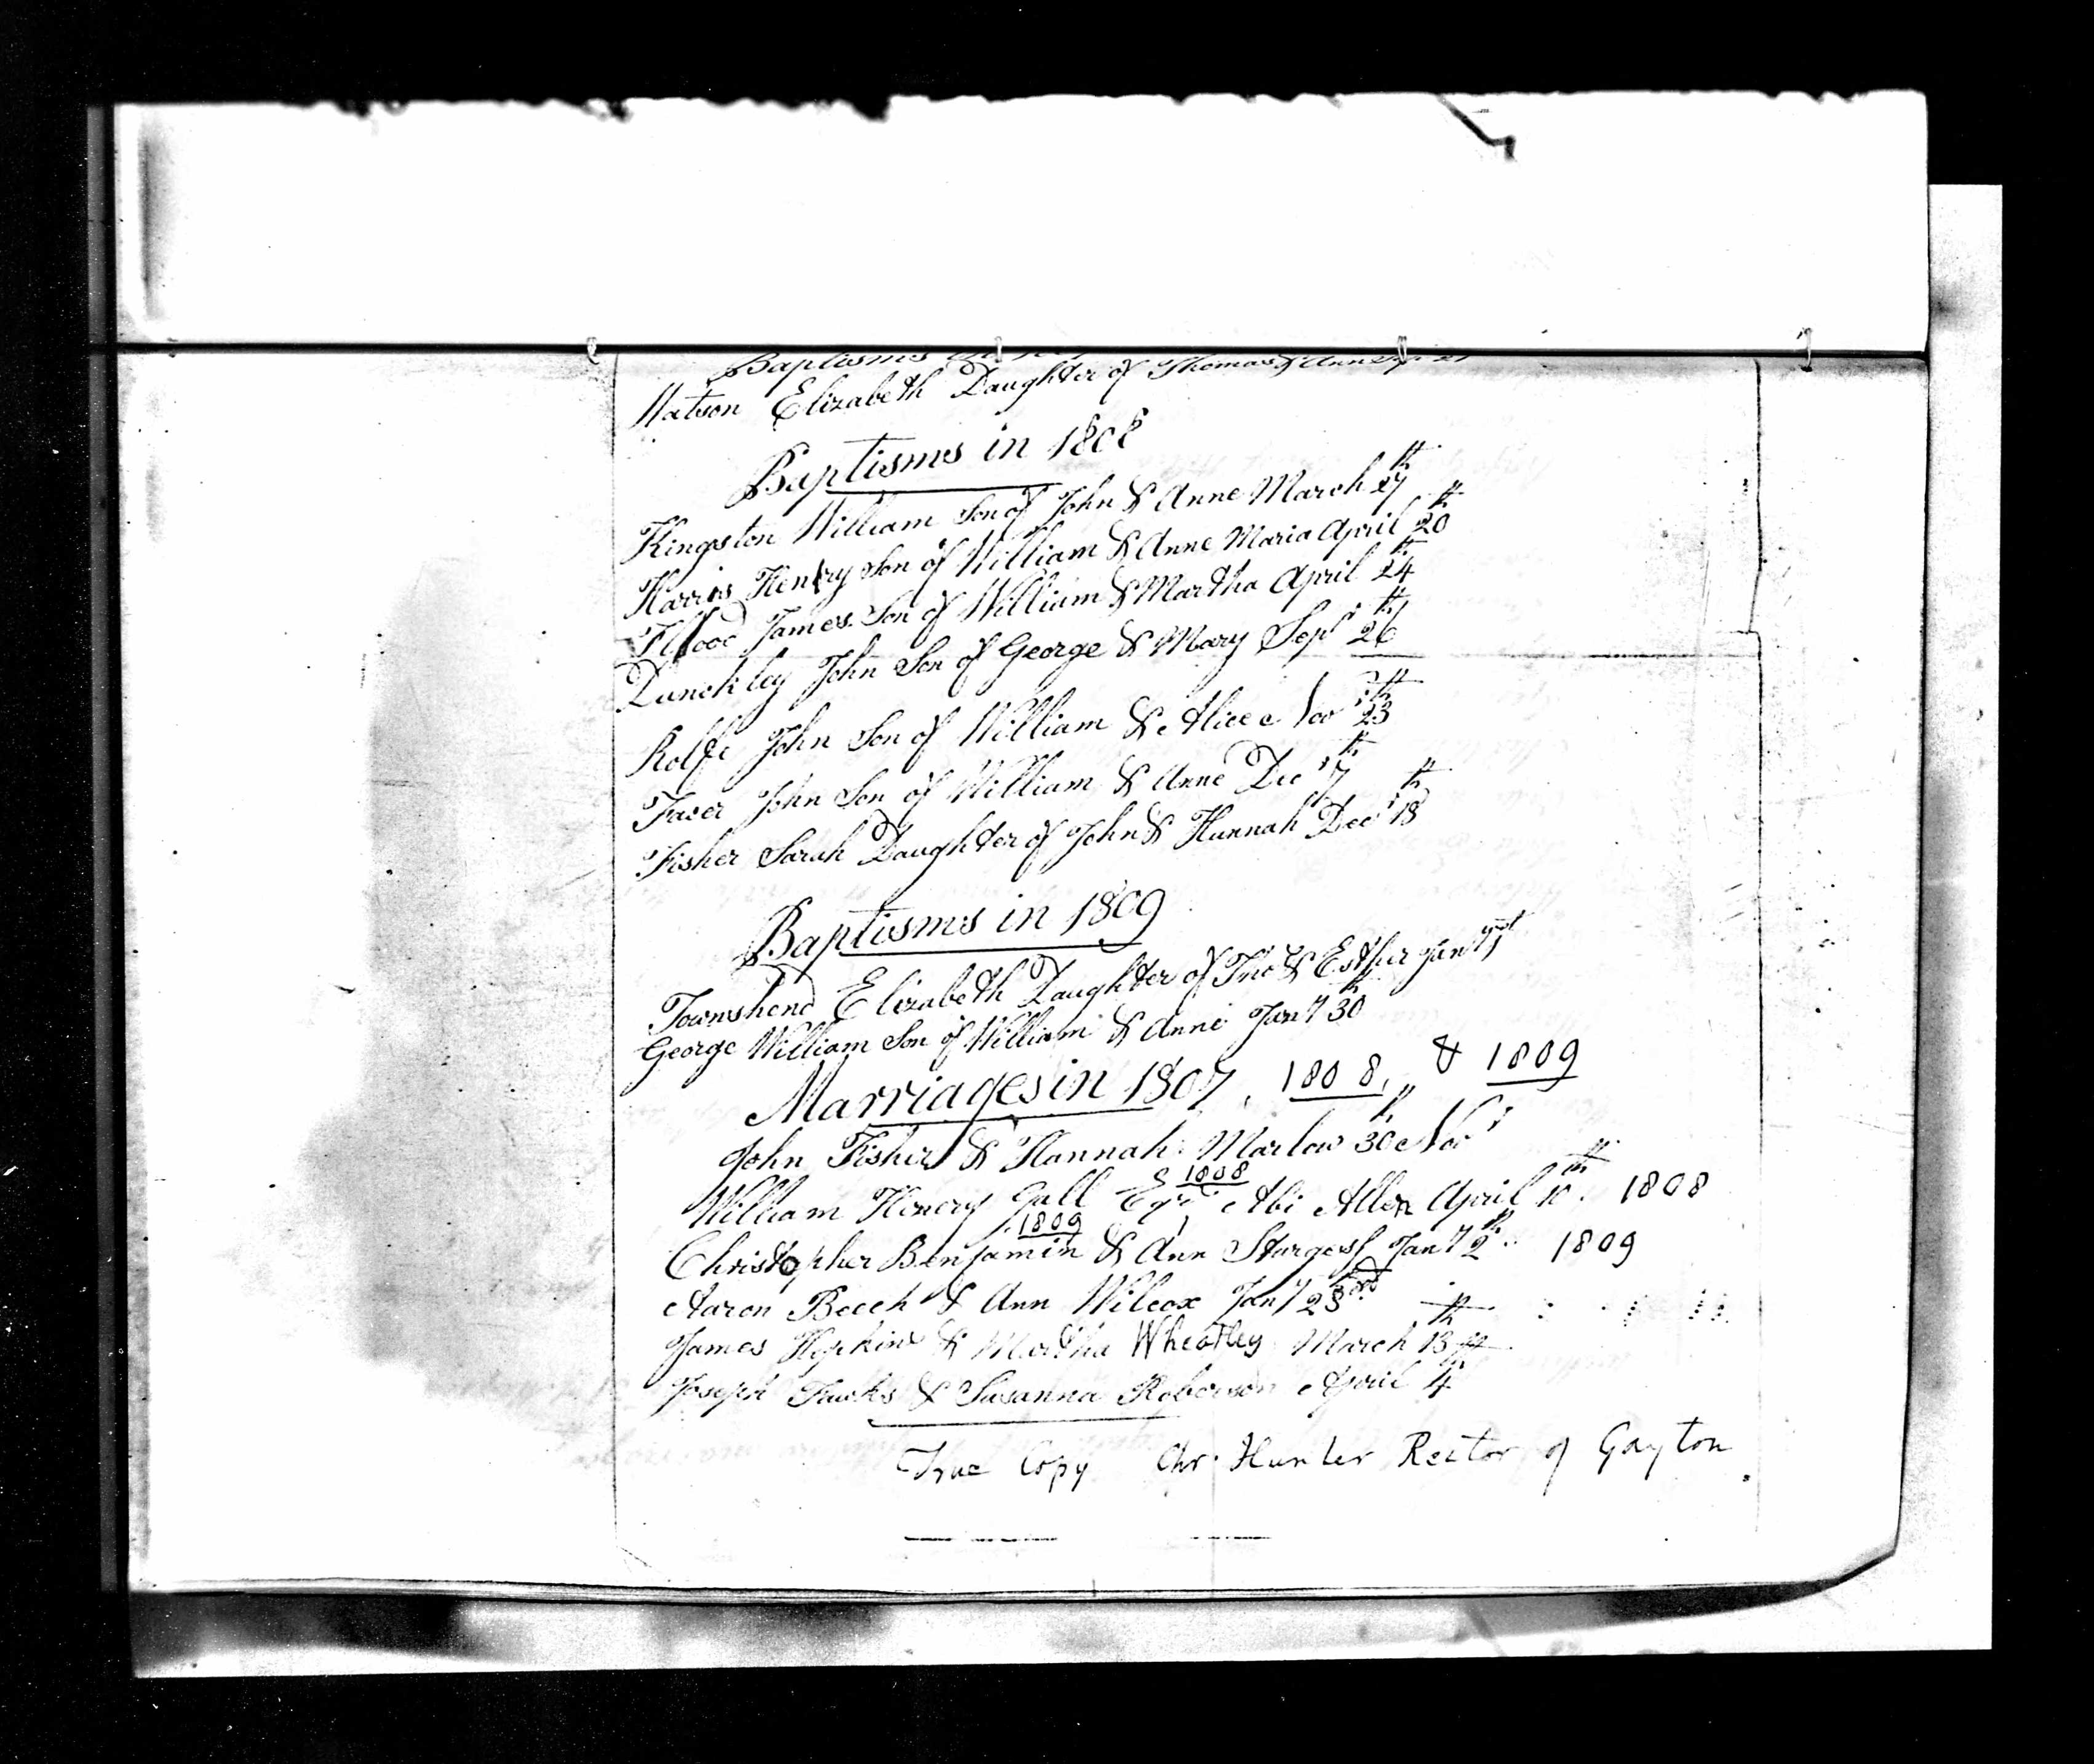 Baptisms
Watson Elizabeth Daughter of Thomas & Ann
Baptisms in 1808
Kingston William Son of John & Anne March 27th
Harris Henry Son of William & Anne Maria April 20th
Flood James Son of William & Martha April 24th
Dunckley John Son of George & Mary Sepr 26th
Rolfe John Son of William & Alice Novr 23th
Facer John Son of William & Anne Decr 7th
Fisher Sarah Daughter of John & Hannah Decr 18th
Baptisms in 1809
Townshend Elizabeth Daughter of Thos & Esther Jany 1st
George William Son of William & Anne Jany 30th
Marriages in 1807, 1808, & 1809
John Fisher & Hannah Marlow 30th Novr
1808
William Henery Gall Esqr Abi Allen April 10th 1808
1809
Christopher Benjamin & Ann Sturgess Jany 2d 1809
Aaron Beech & Ann Wilcox Jany 23rd
James Hopkins & Martha Wheatley March 13th
Joseph Fawks & Susanna Roberson April 4th
True Copy Chr. Hunter Rector of Gayton